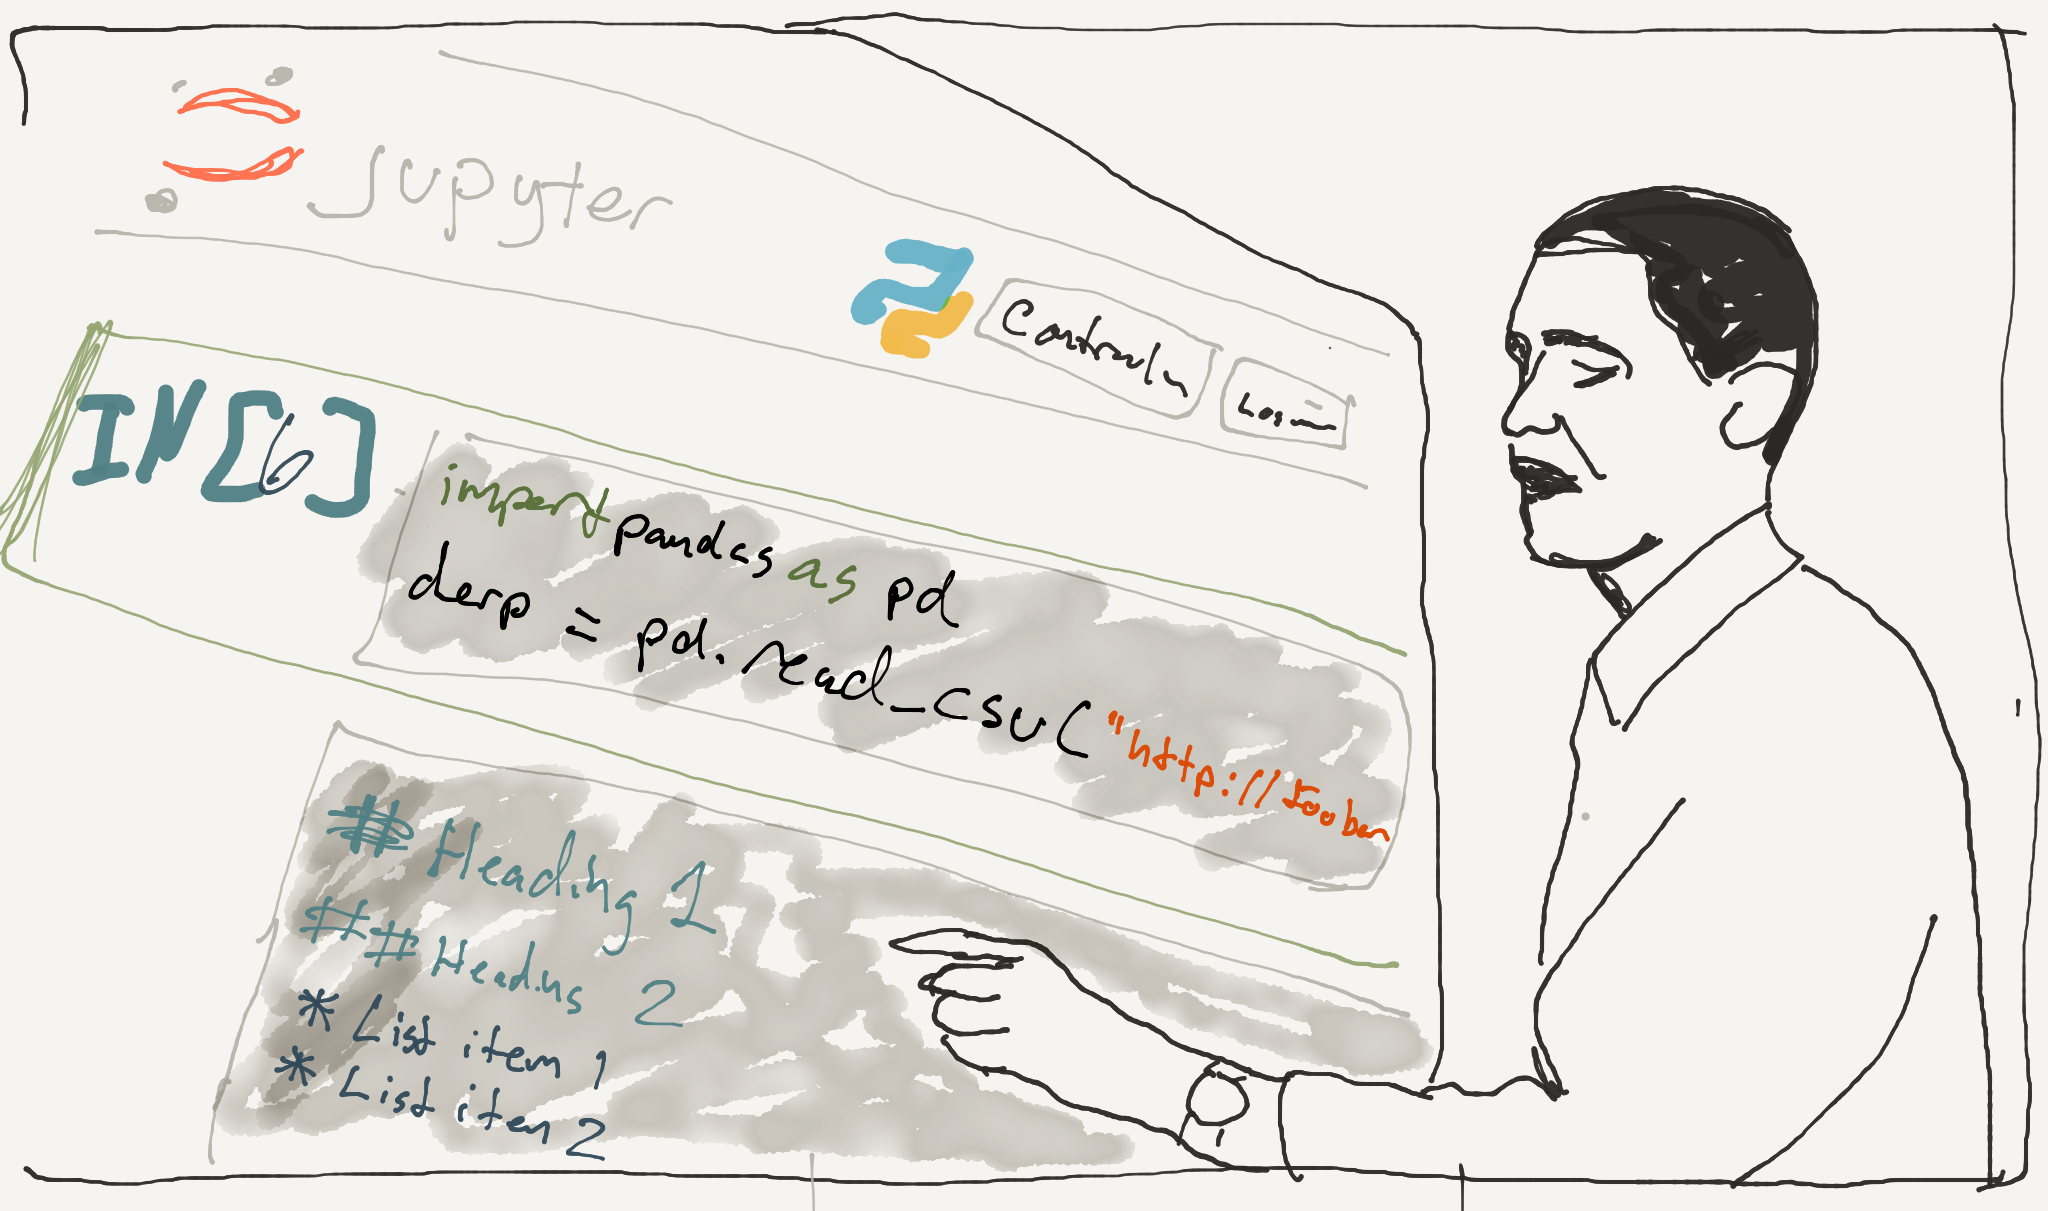 Jupyter
Login
IN[6]
import pandas as pd
derp = pd.read_csv("http://foobar
# Heading 1
## Heading 2
* List item 1
* List item 2